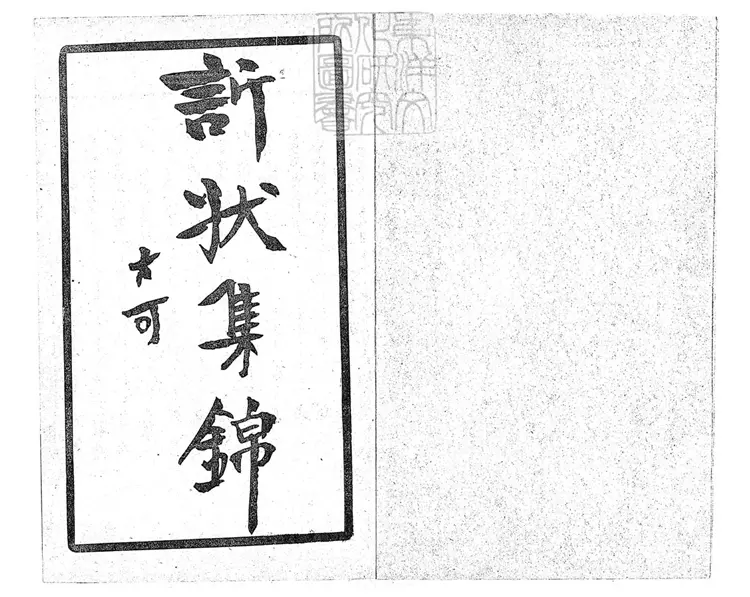 訴状集錦
大可
東洋文
化研究
所圖書